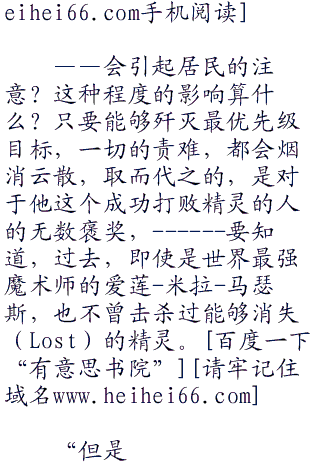 eihei66.com手机阅读]
——会引起居民的注
意？这种程度的影响算什
么？只要能够歼灭最优先级
目标，一切的责难，都会烟
消云散，取而代之的，是对
于他这个成功打败精灵的人
的无数褒奖，------要知
道，过去，即使是世界最强
魔术师的爱莲-米拉-马瑟
斯，也不曾击杀过能够消失
（Lost）的精灵。[百度一下
“有意思书院”][请牢记住
域名www.heihei66.com]
“但是